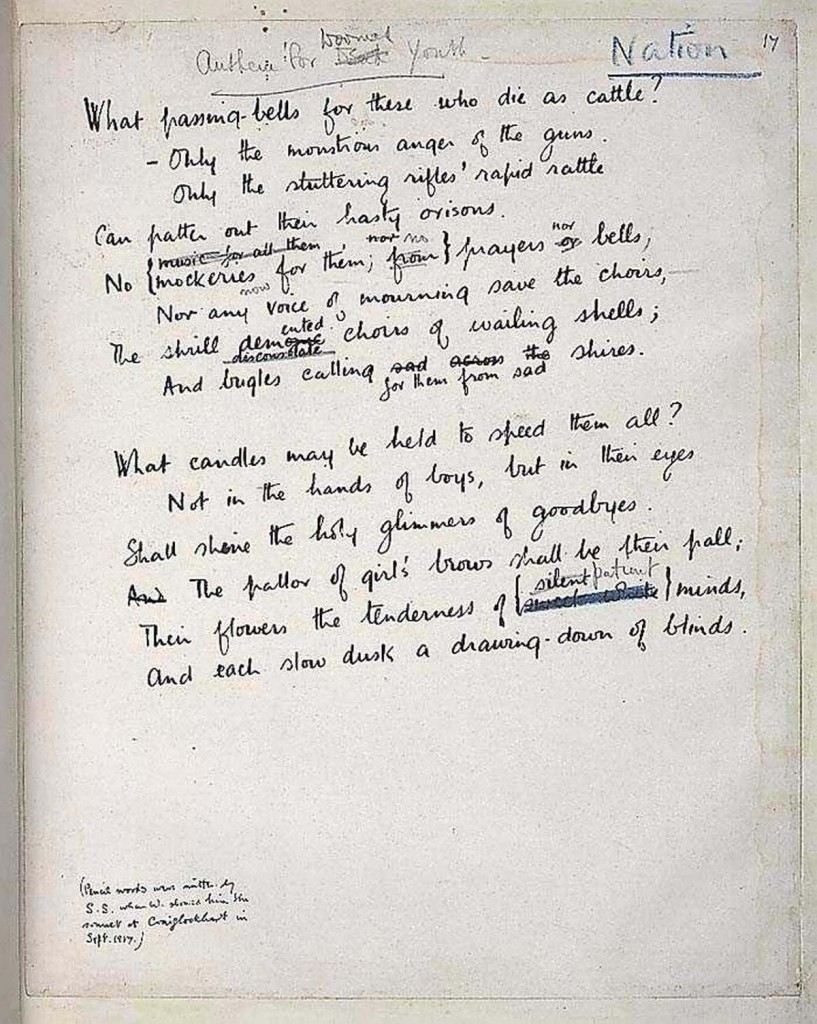 Anthem for Doomed Dead Youth -
Nation
17
What passing-bells for these who die as cattle?
- Only the monstrous anger of the guns.
Only the stuttering rifles' rapid rattle
Can patter out their hasty orisons.
music for all them nor no nor
No { mockeries for them; from } prayers or bells,
now
Nor any voice of mourning save the choirs, -
ented
The shrill demonic choirs of wailing shells;
disconsolate
And bugles calling sad across the shires.
for them from sad
What candles may be held to speed them all?
Not in the hands of boys, but in their eyes
Shall shine the holy glimmers of goodbyes.
And The pallor of girl's brows shall be their pall;
silent patient
Their flowers the tenderness of { } minds,
And each slow dusk a drawing-down of blinds.
(Pencil words were written by
S.S. when W. showed him the
sonnet at Craiglockhart in
Sept. 1917.)